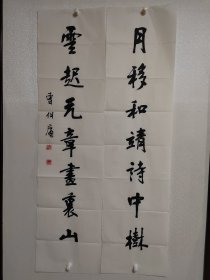 月移和靖詩中樹
雲起元章畫裏山